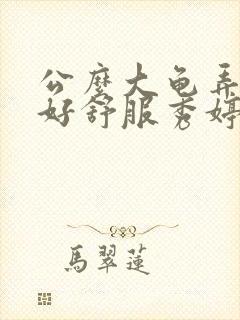 公麽大龟弄
好舒服秀婷
馬翠蓮